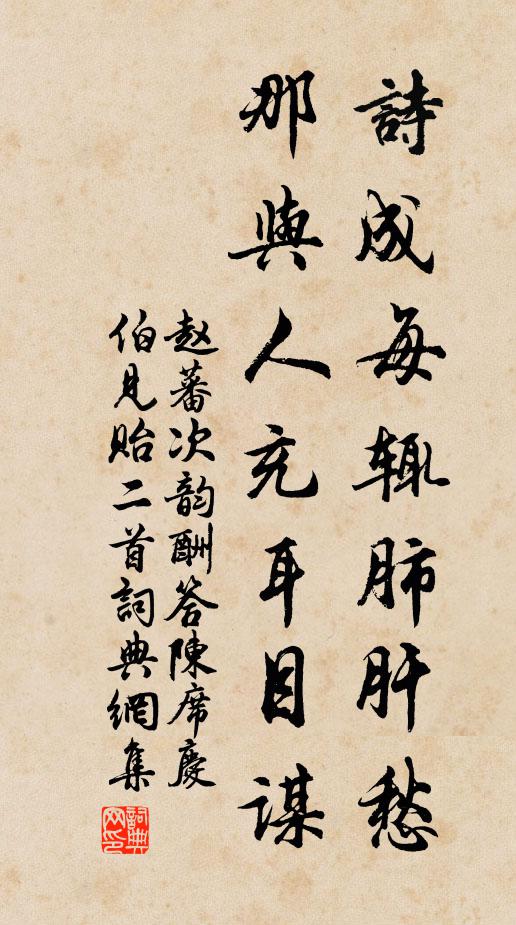 詩成每辄肺肝愁
那與人充耳目謀
赵蕃次韵酬答陳席慶
伯見貽二首詞典網集
詞典
网印